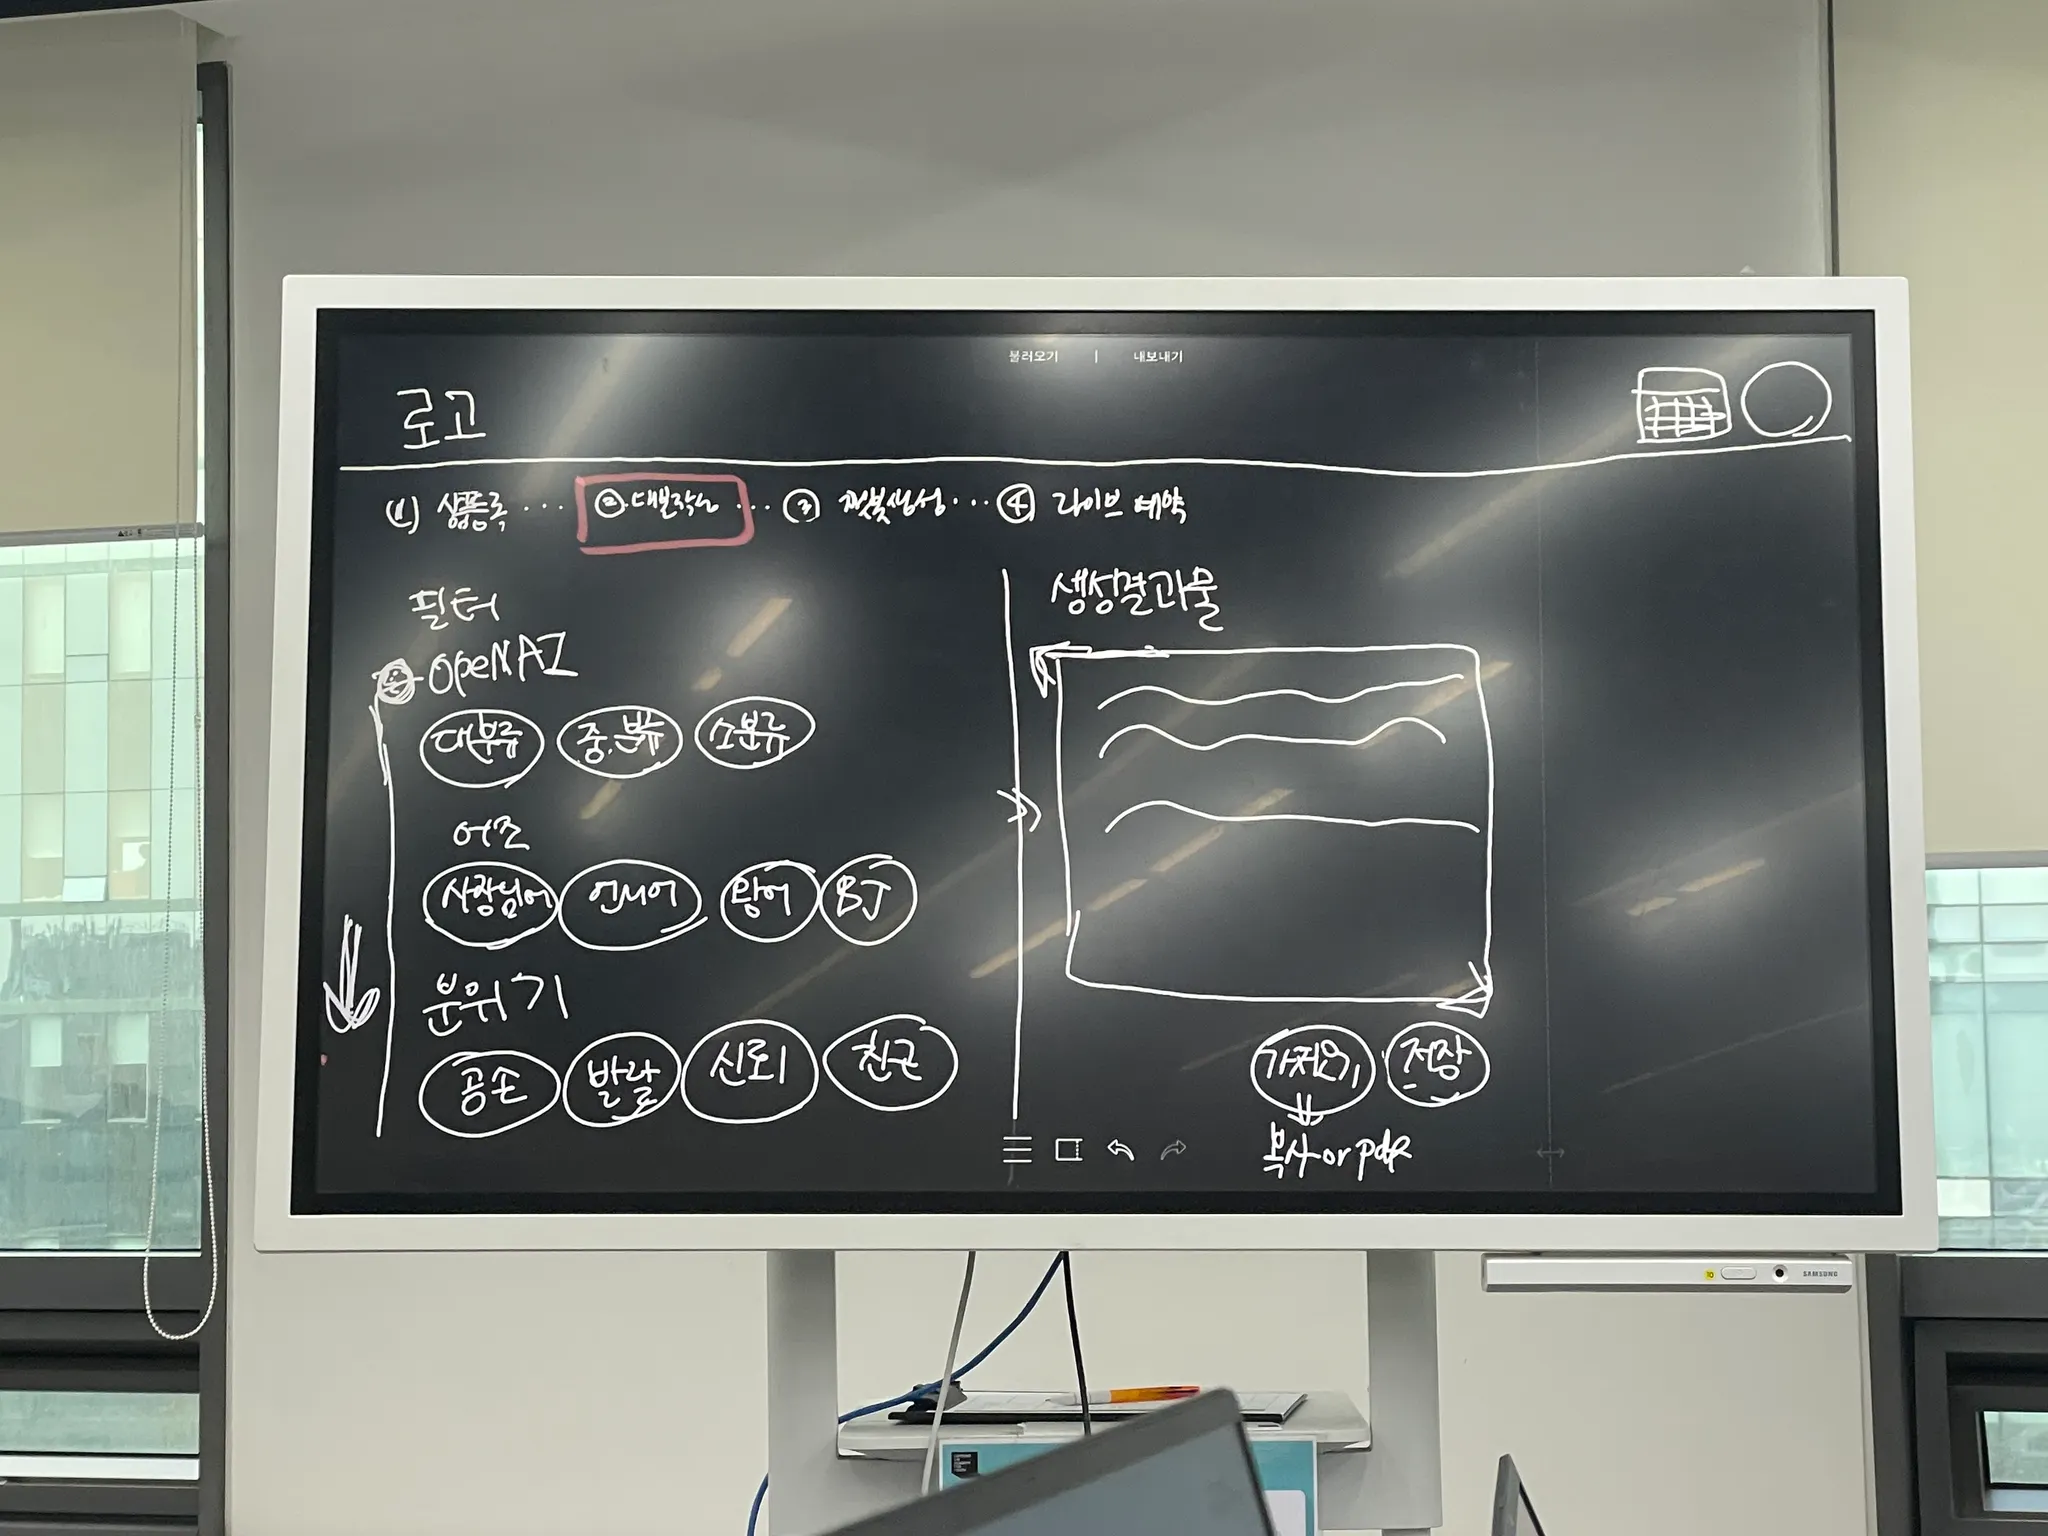 불러오기 | 내보내기
로고
(1) 상품등록 ··· ②.대본작성 ··· ③ 챗봇생성 ··· ④ 라이브 예약
필터
OpeNAI
대분류 중.분류 소분류
어조
사장님어 언니어 왕어 BJ
분위기
공손 발랄 신뢰 친근
생성결과물
가져오기 저장
복사 or pdf
SAMSUNG